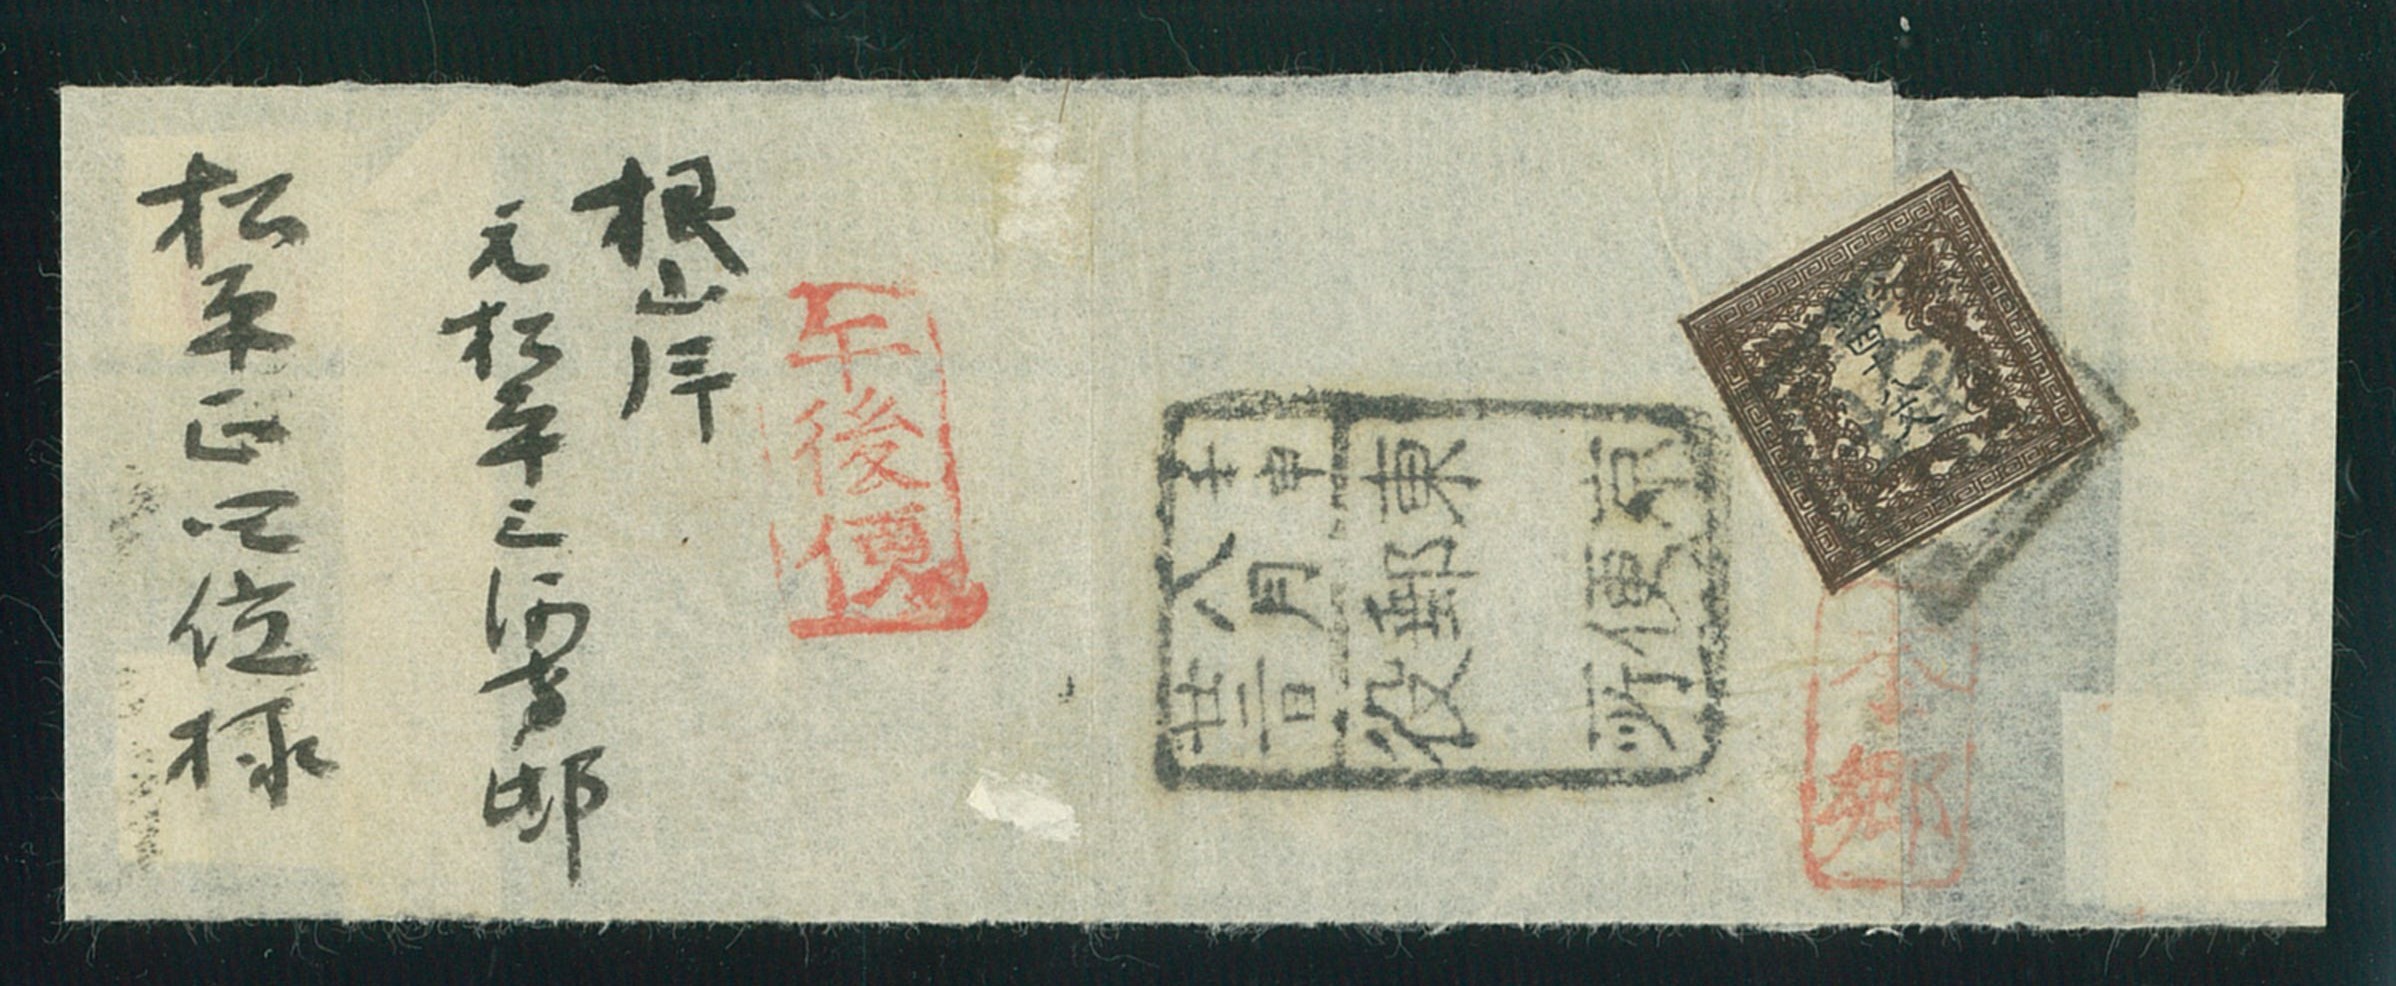 錢四十八文
本郷
東京
郵便
役所
壬申
八月
廿三日
午後便
根山岸
元松平三河守邸
松平正四位様